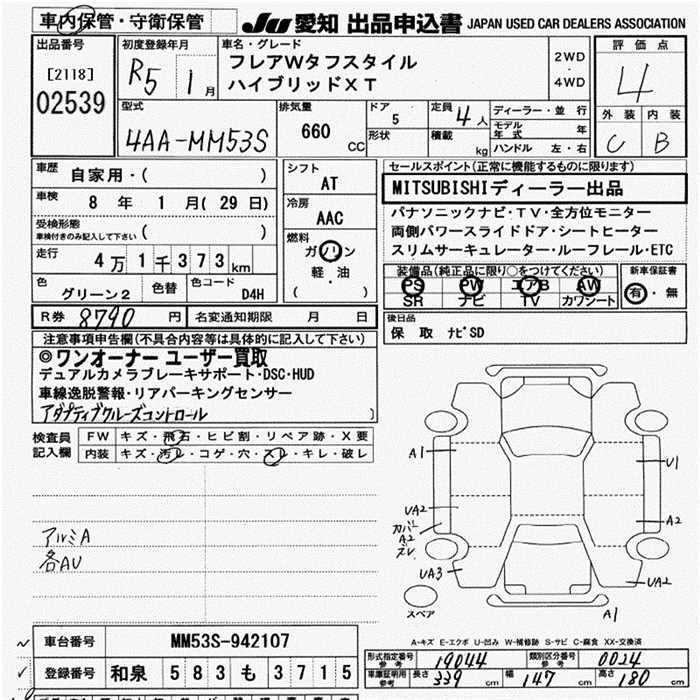 車内保管・守衛保管
JU 愛知 出品申込書 JAPAN USED CAR DEALERS ASSOCIATION
出品番号
[2118]
02539
初度登録年月
R5 1月
車名・グレード
フレアWタフスタイル
ハイブリッドXT
2WD
・
4WD
評価点
4
外装 内装
C B
型式
4AA-MM53S
排気量
660
CC
ドア
5
形状
定員 4人
積載 kg
ディーラー・並行
モデル年式 年
ハンドル 左・右
車歴
自家用・( )
車検
8年 1月(29日)
受検形態
車検付きのみ記入して下さい ( )
走行
4万1千373km
色
グリーン2
色替
色コード
D4H
シフト
AT
冷房
AAC
燃料
ガソリン
軽・油
( )
セールスポイント(正常に機能するものに限ります)
MITSUBISHIディーラー出品
パナソニックナビ・TV・全方位モニター
両側パワースライドドア・シートヒーター
スリムサーキュレーター・ルーフレール・ETC
装備品(純正品に限り○をつけてください)
PS PW エアB AW
SR ナビ TV カワシート
新車保証書
有・無
R券 8790円
名変通知期限 月 日
後日品
保 取 ナビSD
注意事項申告欄(不具合内容等は具体的に記入して下さい)
◎ワンオーナー ユーザー買取
デュアルカメラブレーキサポート・DSC・HUD
車線逸脱警報・リアパーキングセンサー
アダプティブクルーズコントロール
)
検査員
記入欄
FW キズ・飛石・ヒビ割・リペア跡・X要
内装 キズ・汚レ・コゲ・穴・スレ・キレ・破レ
アルミA
各AU
A1
U1
UA2
カバー
A2
ズレ
A2
UA3
UA2
スペア
A1
A-キズ E-エクボ U-凹み W-補修跡 S-サビ C-腐食 XX-交換済
車台番号
MM53S-942107
登録番号
和泉 583 も 3715
形式指定番号
参考
19044
類別区分番号
参考
0024
車庫証明用
参考
長さ 339cm 幅 147cm 高さ 180cm